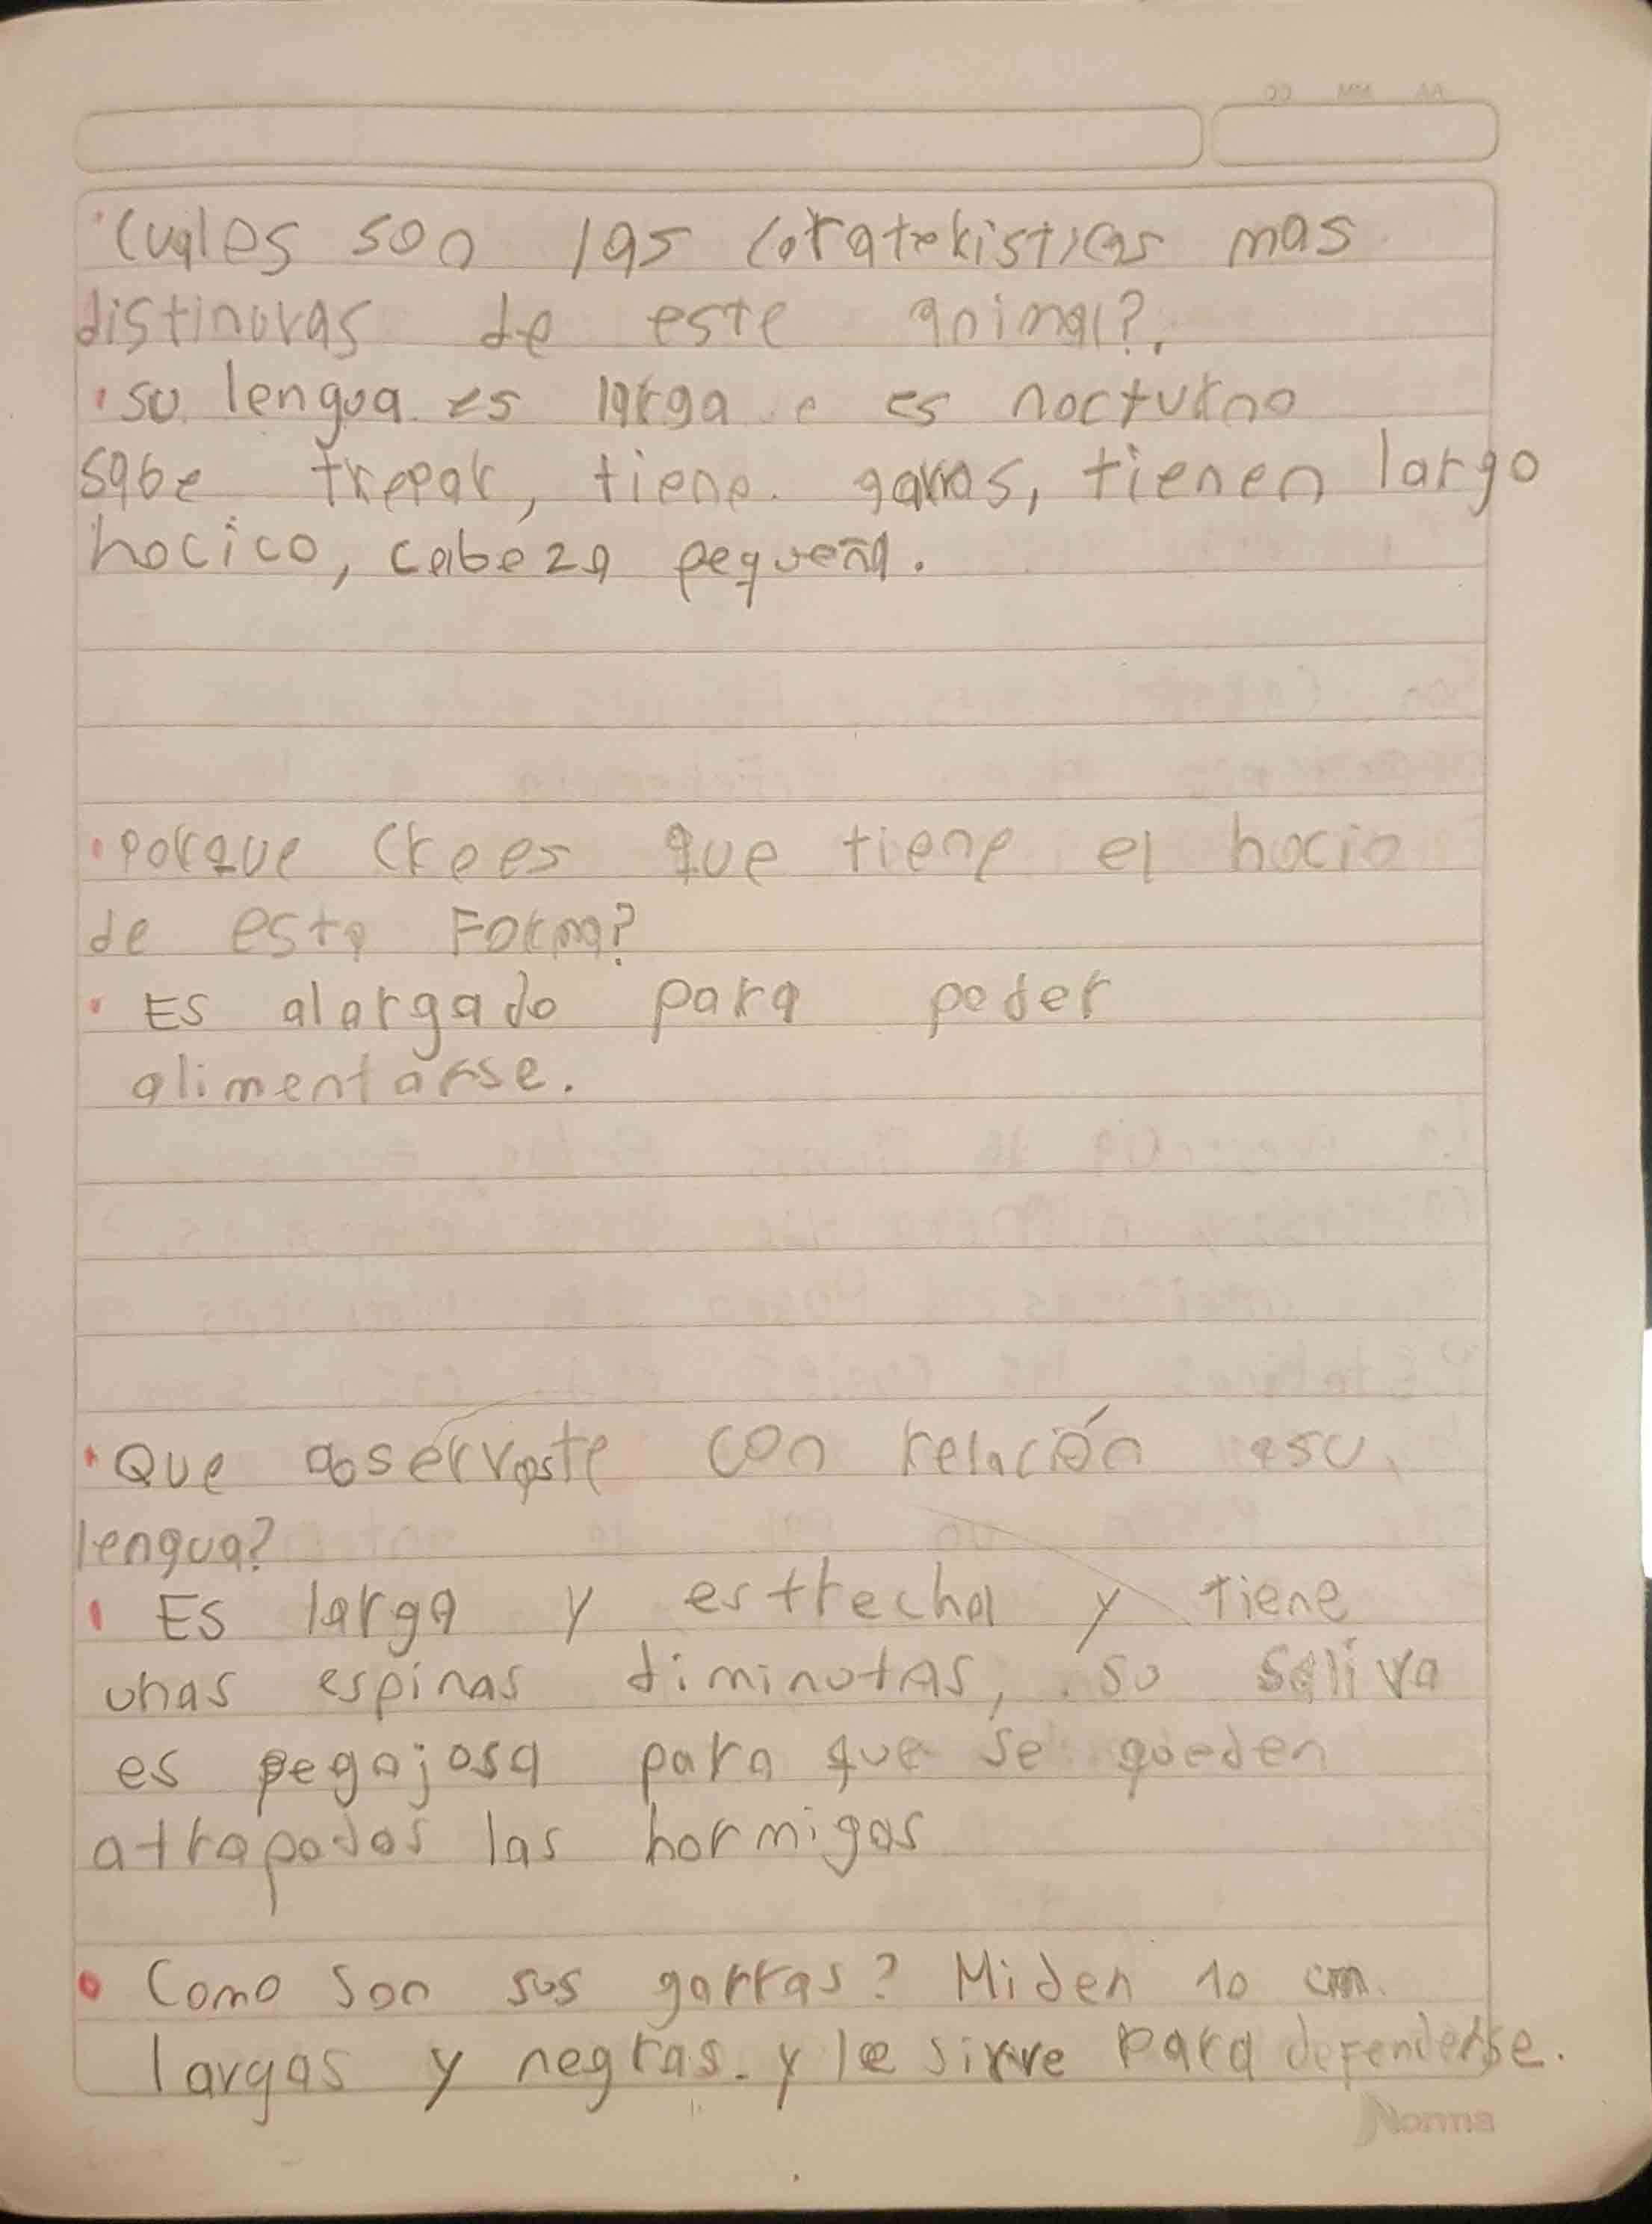 Cuales son las carateristicas mas
distinuvas de este animal?.
su lengua es larga e es nocturno
sabe trepar, tiene garras, tienen largo
hocico, cabeza pequeña.
porque crees que tiene el hocio
de esta Forma?
Es alargado para poder
alimentarse.
Que observaste con relación asu
lengua?
Es larga y estrecha y tiene
unas espinas diminutas, su saliva
es pegajosa para que se queden
atrapados las hormigas
Como son sus garras? Miden 10 cm.
largas y negras. y le sirve para defenderse.
Norma